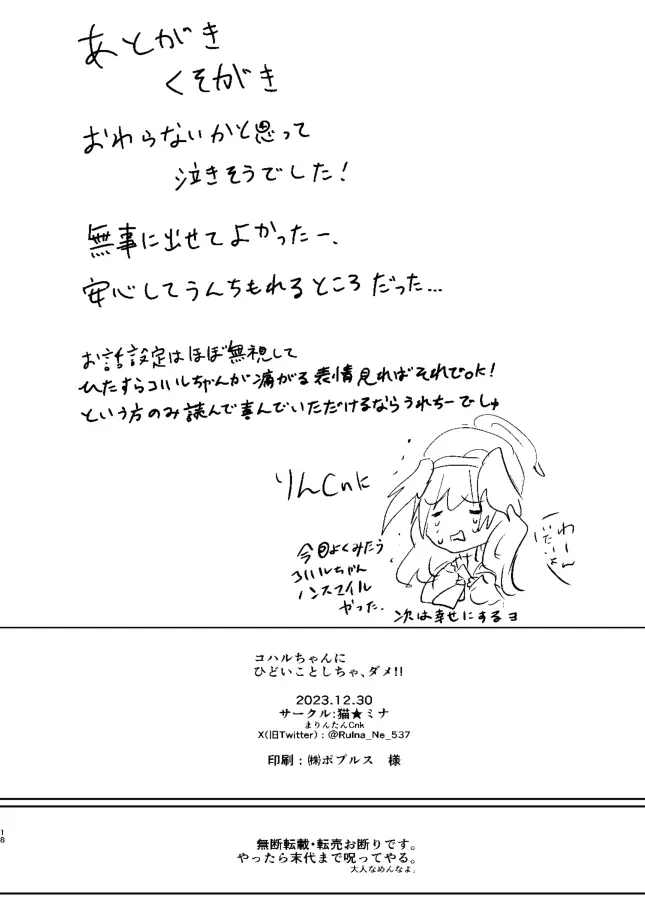 あとがき
くそがき
おわらないかと思って
泣きそうでした!
無事に出せてよかったー、
安心してうんちもれるところだった...
お話設定はほぼ無視して
ひたすらコハルちゃんが痛がる表情見ればそれでOK!
という方のみ読んで喜んでいただけるならうれちーでしゅ
りんCnに
わーん
いたいよー
今回よくみたら
コハルちゃん
ノンスマイル
やった.
次は幸せにするヨ
コハルちゃんに
ひどいことしちゃ、ダメ!!
2023.12.30
サークル:猫★ミナ
まりんたんCnk
X(旧Twitter):@RuIna_Ne_537
印刷:㈱ポプルス 様
18
無断転載・転売お断りです。
やったら末代まで呪ってやる。
大人なめんなよ。